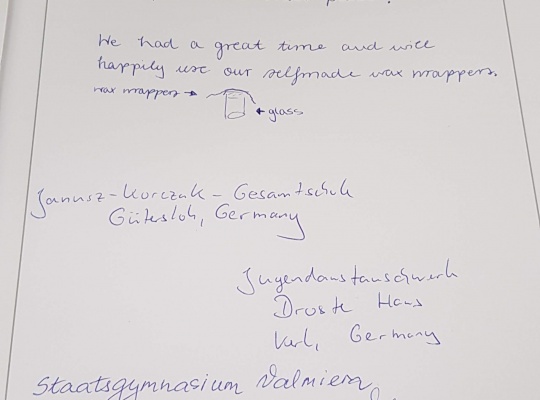 We had a great time and will
happily use our selfmade wax wrappers.
wax wrappers →
← glass
Janusz-Korczak-Gesamtschule
Gütersloh, Germany
Jugendaustauschwerk
Droste Haus
Verl, Germany
Staatsgymnasium Valmiera